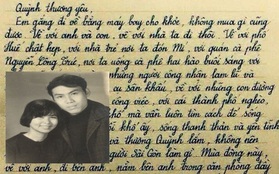 Quỳnh thương yêu,
Em gắng đi về bằng máy bay cho khỏe, không mua gì cũng
được. Về với anh và con, về với nhà ta đi thôi. Về với phố
Huế chật hẹp, với nhà trẻ nơi ta đón Mí, với quán cà phê
Nguyễn Công Trứ, nơi ta uống cà phê hai hào buổi sáng với
những người công nhân lam lũ và
sân khấu, về với những con đường
công việc, với cái thành phố nghèo,
khổ mà vẫn muốn tìm cách để sống
khổ ấy, sống thanh thản và yên tĩnh
và thương Quỳnh lắm, không nên
người Sài Gòn làm gì. Mùa đông này,
về với anh, đi bên anh, nằm bên anh trong căn phòng đầy